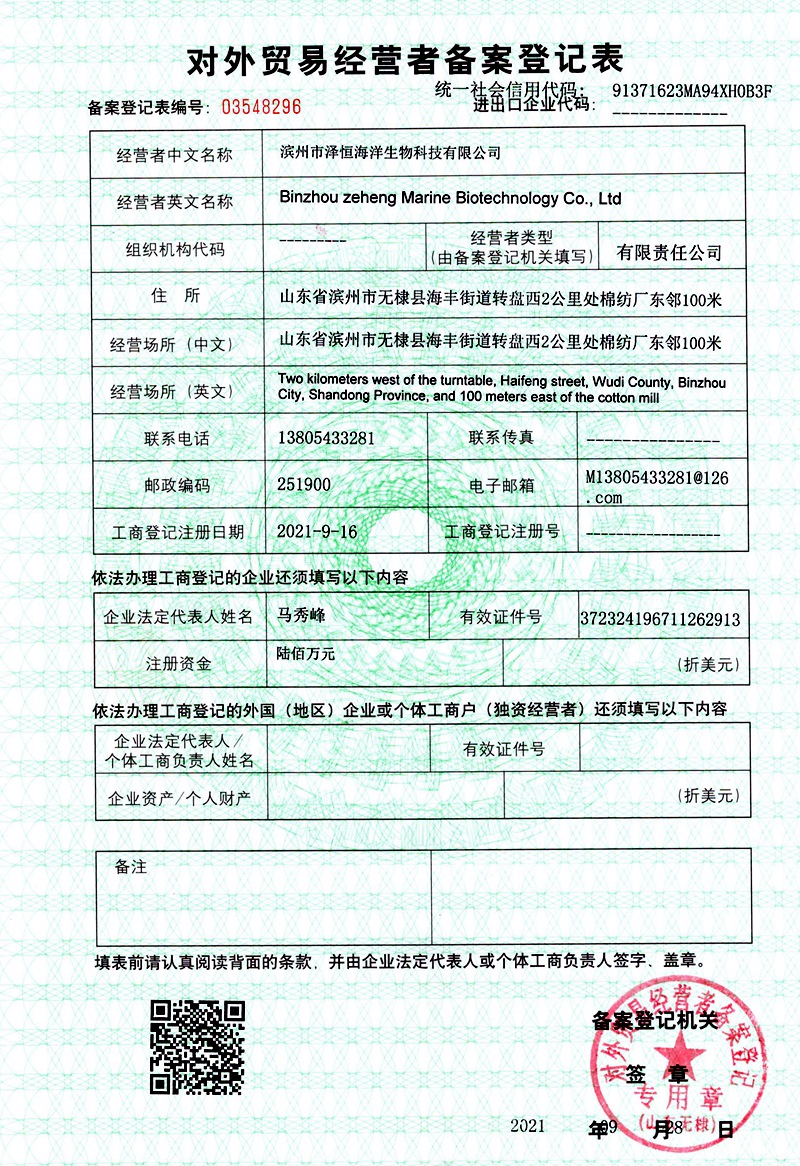 对外贸易经营者备案登记表
统一社会信用代码： 91371623MA94XH0B3F
备案登记表编号： 03548296 进出口企业代码： -------------
经营者中文名称 滨州市泽恒海洋生物科技有限公司
经营者英文名称 Binzhou zeheng Marine Biotechnology Co., Ltd
组织机构代码 --------- 经营者类型 有限责任公司
(由备案登记机关填写)
住 所 山东省滨州市无棣县海丰街道转盘西2公里处棉纺厂东邻100米
经营场所（中文） 山东省滨州市无棣县海丰街道转盘西2公里处棉纺厂东邻100米
经营场所（英文） Two kilometers west of the turntable, Haifeng street, Wudi County, Binzhou
City, Shandong Province, and 100 meters east of the cotton mill
联系电话 13805433281 联系传真 ---------------
邮政编码 251900 电子邮箱 M13805433281@126
.com
工商登记注册日期 2021-9-16 工商登记注册号 ---------------
依法办理工商登记的企业还须填写以下内容
企业法定代表人姓名 马秀峰 有效证件号 372324196711262913
注册资金 陆佰万元 (折美元)
依法办理工商登记的外国（地区）企业或个体工商户（独资经营者）还须填写以下内容
企业法定代表人/ 有效证件号
个体工商负责人姓名
企业资产/个人财产 (折美元)
备注
填表前请认真阅读背面的条款，并由企业法定代表人或个体工商负责人签字、盖章。
对外贸易经营者备案登记
备案登记机关
签 章
专用章
(山东无棣)
2021 年09 月28 日